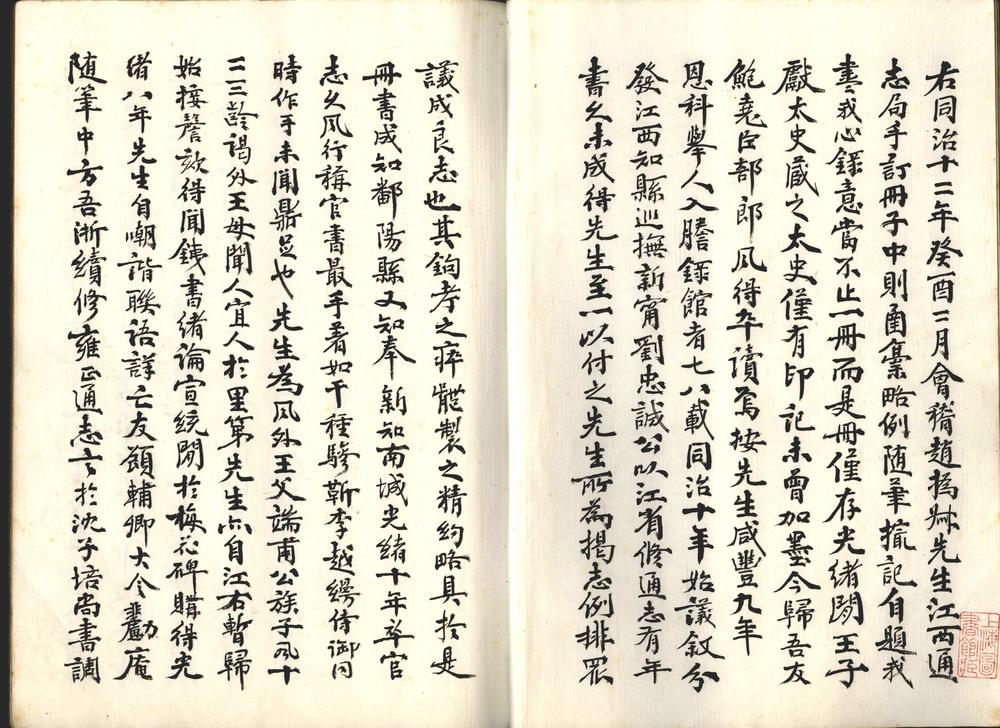 右同治十二年癸酉二月會稽趙撝叔先生江西通
志局手訂冊子中則圅彙略例随筆摭記自題我
書我心錄意當不止一冊而是冊僅存光緒間王子
獻太史藏之太史僅有印記未曾加墨今歸吾友
鮑堯臣部郎夙得卒讀焉按先生咸豐九年
恩科舉人入謄錄館者七八載同治十年始議敘分
發江西知縣巡撫新甯劉忠誠公以江省修通志有年
書久未成得先生至一以付之先生所為揭志例排眾
議成良志也其鉤考之瘁體製之精約略具於是
冊書成知鄱陽縣又知奉新知南城光緒十年卒官
志久風行稱官書最手著如干種驂靳李越縵侍御同
時作手未聞鼎足也先生為夙外王父端甫公族子夙十
二三齡謁外王母聞人宜人於里第先生亦自江右暫歸
始接謦欬得聞錢書緒論宣統間於梅花碑購得光
緒八年先生自嘲諧聯語詳亡友顧輔卿大令勸庵
随筆中方吾浙續修雍正通志言於沈子培尚書調
上海圖書館藏